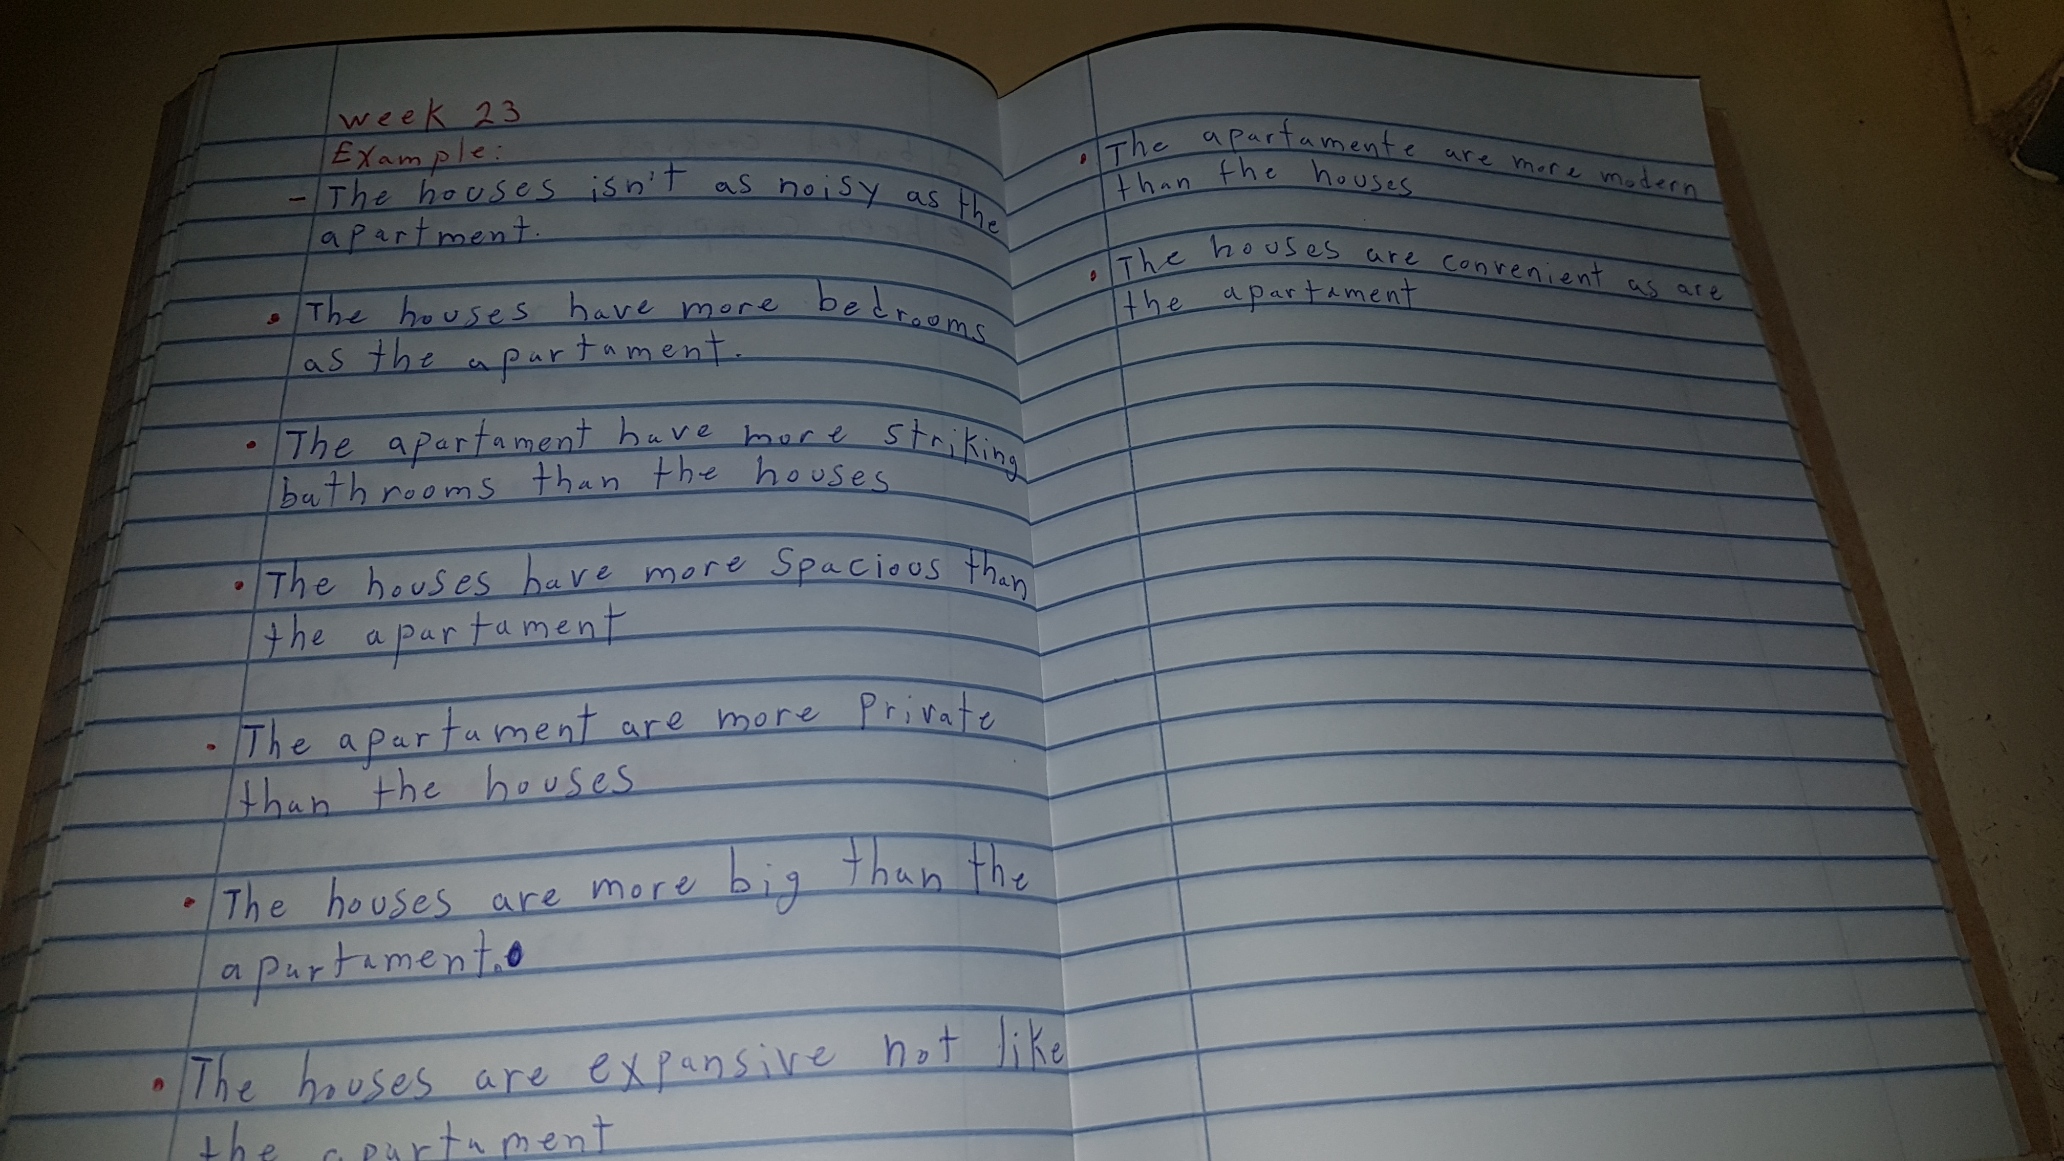 week 23
Example:
- The houses isn't as noisy as the
apartment.
• The houses have more bedrooms
as the apartament.
• The apartament have more striking
bathrooms than the houses
• The houses have more Spacious than
the apartament
• The apartament are more Private
than the houses
• The houses are more big than the
apartament.
• The houses are expansive not like
the apartament
• The apartamente are more modern
than the houses
• The houses are convenient as are
the apartament